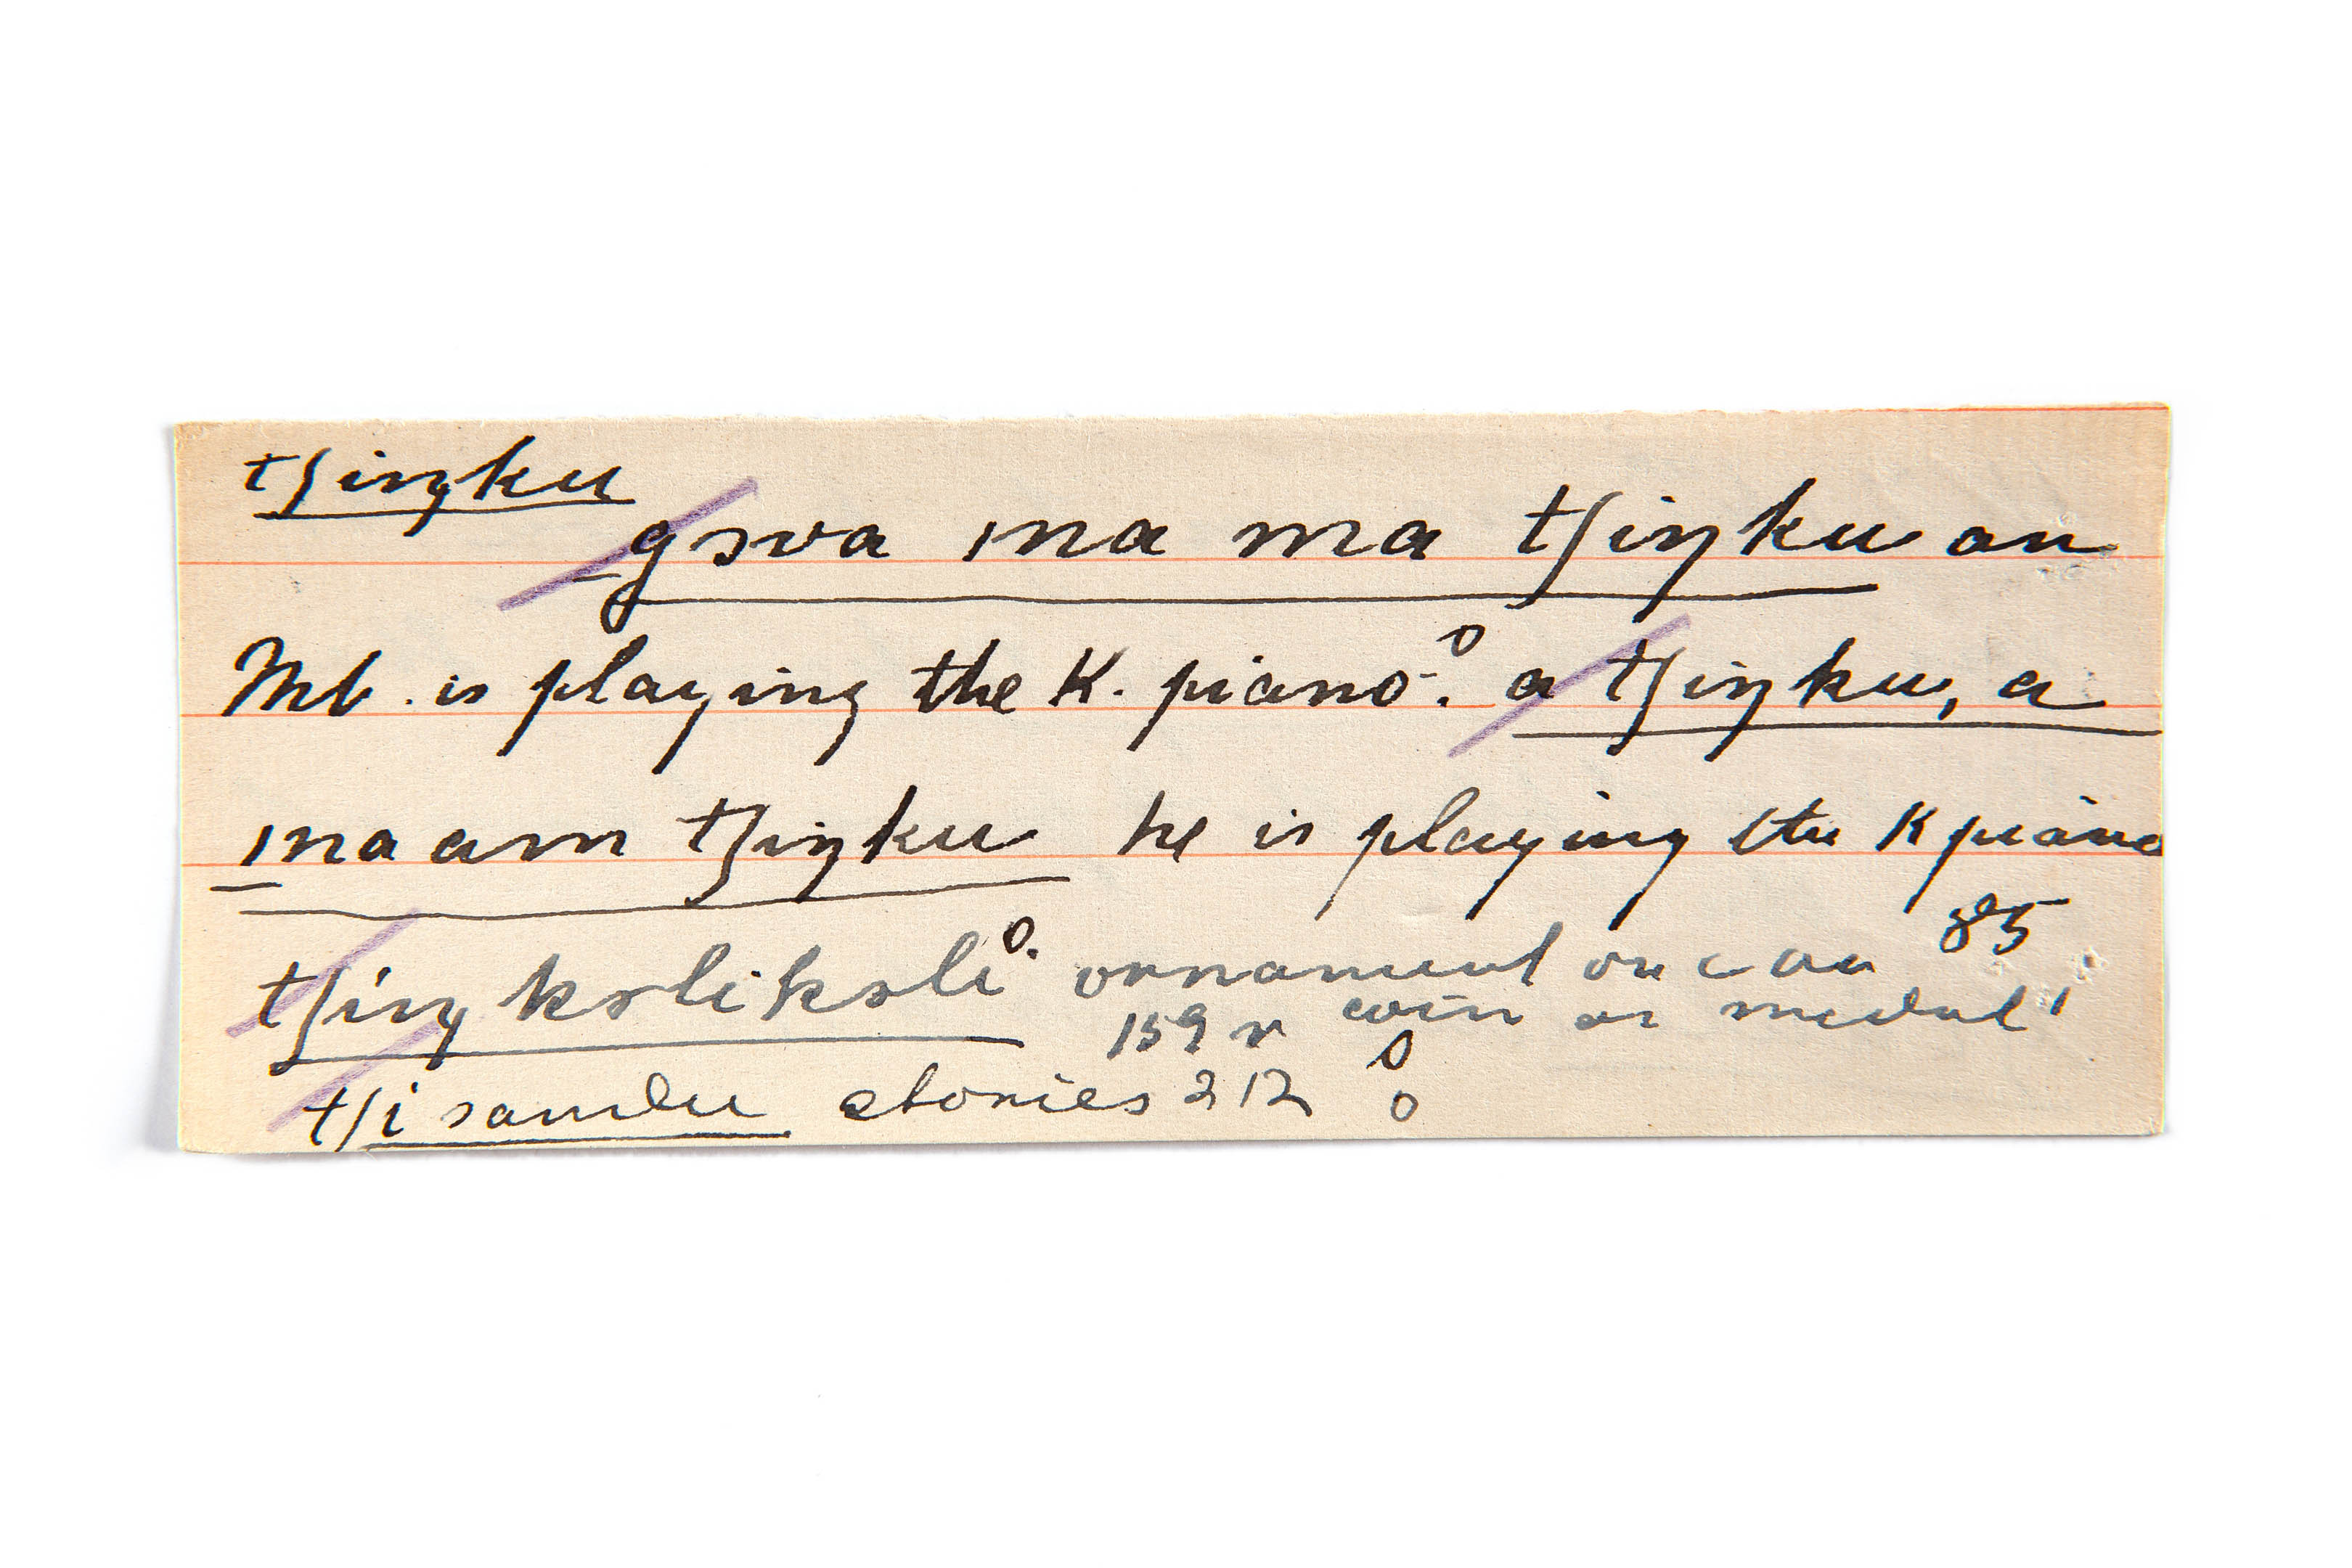 tʃiŋku
gɔva ma ma tʃiŋku an
Mb. is playing the K. piano. a tʃiŋku, a
ma am tʃiŋku he is playing the K piano
85
ornament on ear
159 v coin or medal'
stories 212